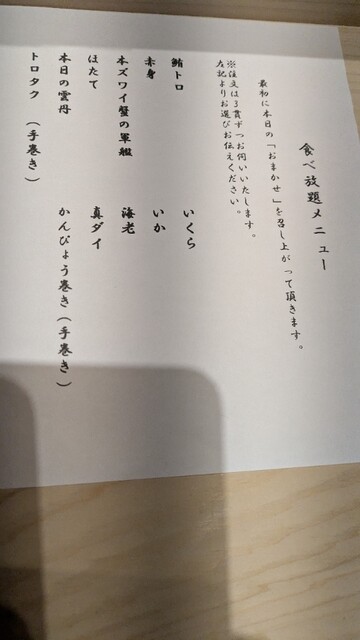 食べ放題メニュー
最初に本日の「おまかせ」を召し上がって頂きます。
※注文は3貫ずつお伺いいたします。
左記よりお選びお伝えください。
鮪トロ いくら
赤身 いか
本ズワイ蟹の軍艦 海老
ほたて 真ダイ
本日の雲丹 かんぴょう巻き(手巻き)
トロタク (手巻き)